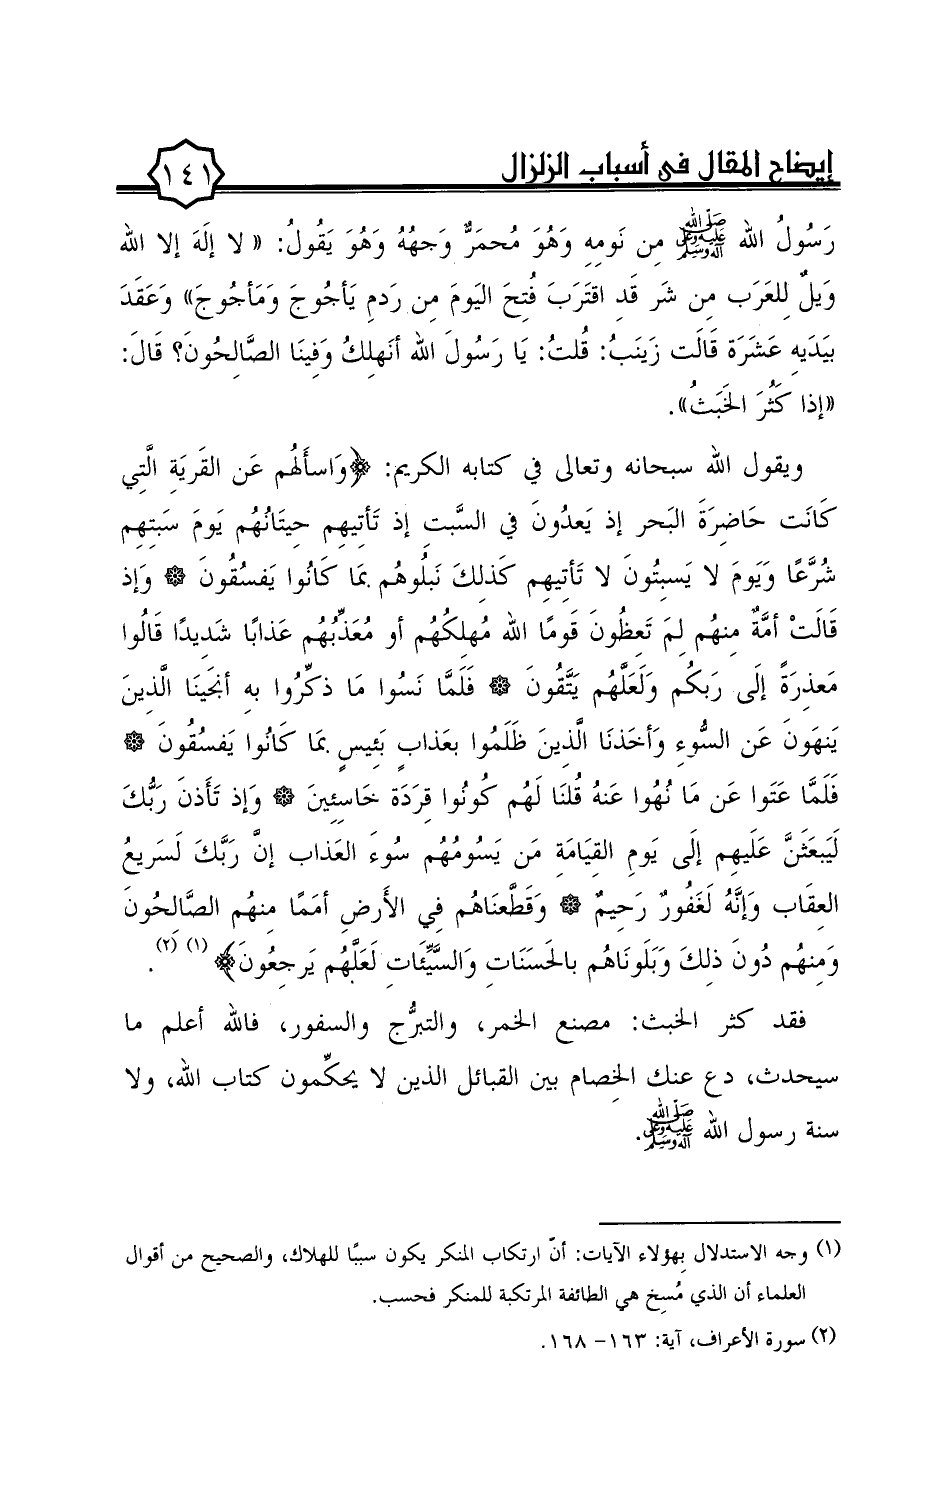 إيضاح المقال في أسباب الزلزال ١٤١
رَسُولُ الله ﷺ مِن نَومِهِ وَهُوَ مُحمَرٌّ وَجهُهُ وَهُوَ يَقُولُ: « لا إلَهَ إلا الله
وَيلٌ لِلعَرَبِ مِن شَر قَدِ اقتَرَبَ فُتِحَ اليَومَ مِن رَدمِ يَأجُوجَ وَمَأجُوجَ» وَعَقَدَ
بِيَدَيهِ عَشَرَة قَالَت زَينَبُ: قُلتُ: يَا رَسُولَ الله أنَهلِكُ وَفِينَا الصَّالِحُونَ؟ قَالَ:
«إذا كَثُرَ الخَبَثُ».
ويقول الله سبحانه وتعالى في كتابه الكريم: ﴿وَاسأَلهُم عَنِ القَريَةِ الَّتِي
كَانَت حَاضِرَةَ البَحرِ إذ يَعدُونَ فِي السَّبتِ إذ تَأتِيهِم حِيتَانُهُم يَومَ سَبتِهِم
شُرَّعًا وَيَومَ لا يَسبِتُونَ لا تَأتِيهِم كَذلِكَ نَبلُوهُم بِمَا كَانُوا يَفسُقُونَ ۞ وَإذ
قَالَتْ أمَّةٌ مِنهُم لِمَ تَعِظُونَ قَومًا الله مُهلِكُهُم أو مُعَذِّبُهُم عَذابًا شَدِيدًا قَالُوا
مَعذِرَةً إلَى رَبِكُم وَلَعَلَّهُم يَتَّقُونَ ۞ فَلَمَّا نَسُوا مَا ذكِّرُوا بِهِ أنجَينَا الَّذِينَ
يَنهَونَ عَنِ السُّوءِ وَأخَذنَا الَّذِينَ ظَلَمُوا بِعَذابٍ بَئِيسٍ بِمَا كَانُوا يَفسُقُونَ ۞
فَلَمَّا عَتَوا عَن مَا نُهُوا عَنهُ قُلنَا لَهُم كُونُوا قِرَدَة خَاسِئِينَ ۞ وَإذ تَأَذنَ رَبُّكَ
لَيَبعَثَنَّ عَلَيهِم إلَى يَومِ القِيَامَةِ مَن يَسُومُهُم سُوءَ العَذابِ إنَّ رَبَّكَ لَسَرِيعُ
العِقَابِ وَإنَّهُ لَغَفُورٌ رَحِيمٌ ۞ وَقَطَّعنَاهُم فِي الأَرضِ أمَمًا مِنهُم الصَّالِحُونَ
وَمِنهُم دُونَ ذلِكَ وَبَلَونَاهُم بِالحَسَنَاتِ وَالسَّيِّئَاتِ لَعَلَّهُم يَرجِعُونَ﴾ (١) (٢).
فقد كثر الخبث: مصنع الخمر، والتبرُّج والسفور، فالله أعلم ما
سيحدث، دع عنك الخِصام بين القبائل الذين لا يحكِّمون كتاب الله، ولا
سنة رسول الله ﷺ.
(١) وجه الاستدلال بهؤلاء الآيات: أنّ ارتكاب المنكر يكون سببًا للهلاك، والصحيح من أقوال
العلماء أن الذي مُسِخ هي الطائفة المرتكبة للمنكر فحسب.
(٢) سورة الأعراف، آية: ١٦٣- ١٦٨.